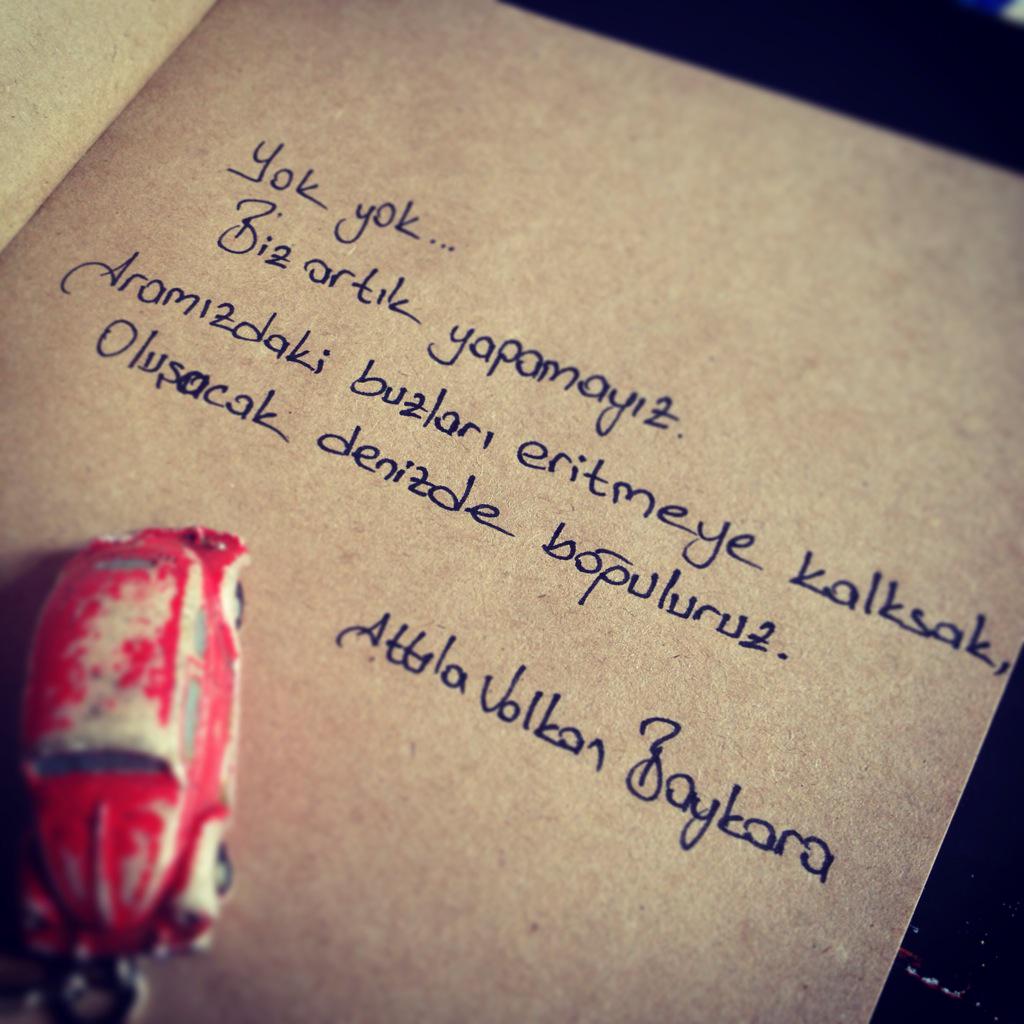 Yok yok...
Biz artık yapamayız.
Aramızdaki buzları eritmeye kalksak,
Oluşacak denizde boğuluruz.
Attila Volkan Baykara